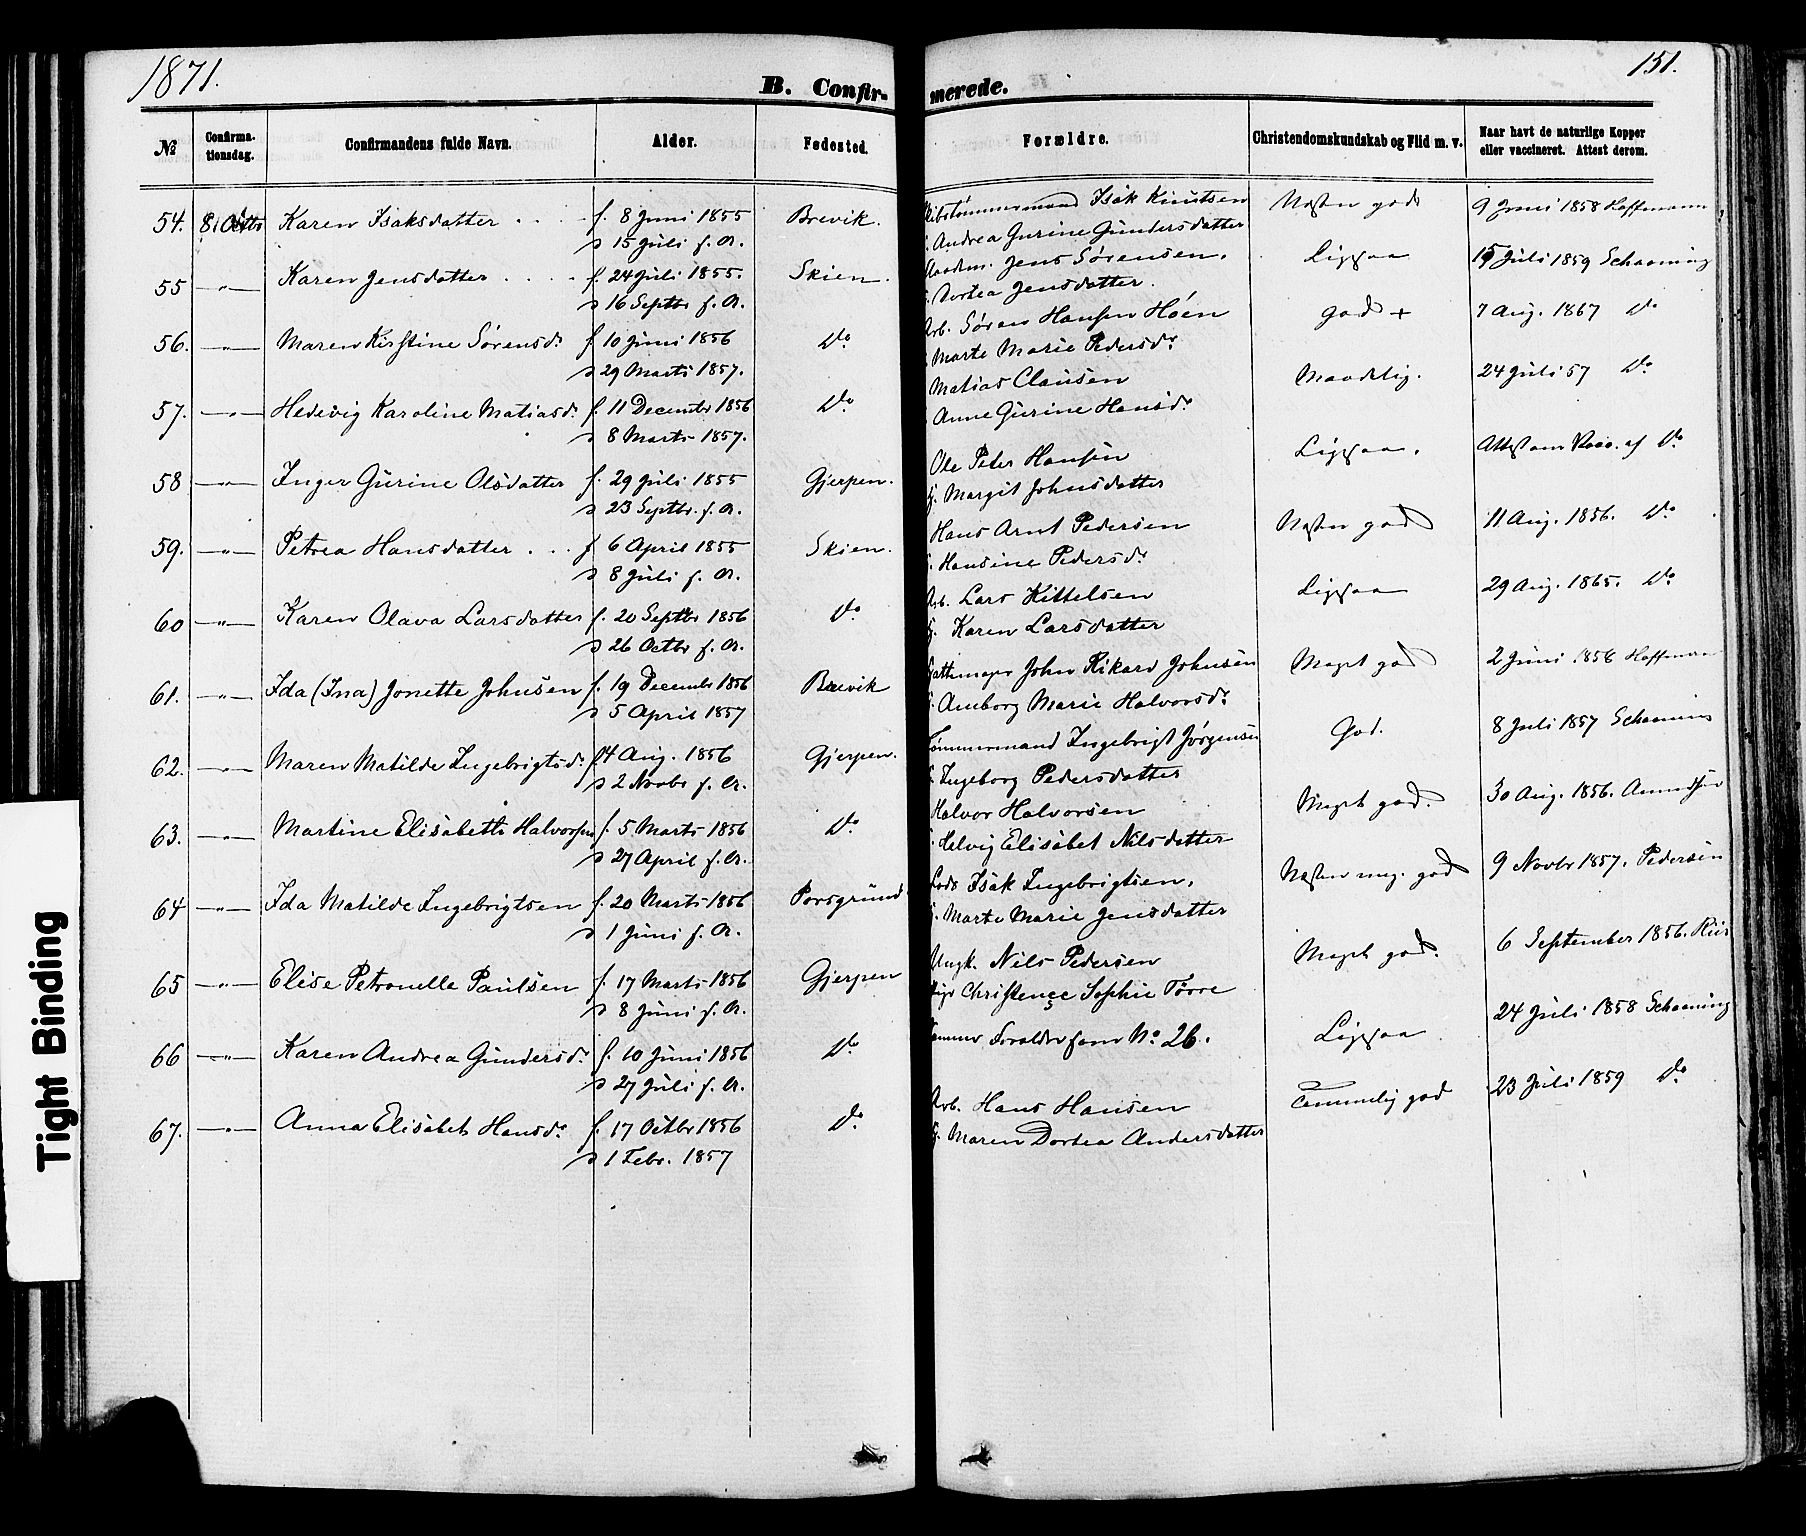 1871.
151.
B. Confir- merede.
№ Confirmationsdag. Confirmandens fulde Navn. Alder. Fødested. Forældre. Christendomskundskab og Flid m. v. Naar havt de naturlige Kopper eller vaccineret. Attest derom.
54. 8 Octbr Karen Isaksdatter . . . . f. 8 Juni 1855 Brevik. Isak Knutsen Næsten god 9 Juni 1858 Hoffmann
d 15 Juli s. A. Andrea Gurine Gundersdatter
55 —"— Karen Jensdatter . . . . f. 24 Juli 1855. Skien. Jens Sørensen. Ligesaa 15 Juli 1859 Schaaning
d 16 Septbr s. A. Dortea Jensdatter.
56. —"— Maren Kirstine Sørensdr f. 10 Juni 1856 Do Arb. Søren Hansen Høen god + 7 Aug. 1867 Do
d 29 Marts 1857. Marte Marie Pedersdr
57. —"— Hedevig Karoline Matiasdr f. 11 Decembr 1856 Do Matias Clausen Maadelig. 24 Juli 57 Do
d 8 Marts 1857. Anne Gurine Hansdr
58 —"— Inger Gurine Olsdatter f. 29 Juli 1855 Gjerpen. Ole Peter Hansen Ligesaa. Attest om Vacc. af Do
d 23 Septbr. s. A. Margit Johnsdatter
59. —"— Petrea Hansdatter . . . f 6 April 1855 Skien. Hans Arnt Pedersen Næsten god 11 Aug. 1856. Do
d 8 Juli s. A. Hansine Pedersdr
60 —"— Karen Olava Larsdatter f. 20 Septbr 1856 Do Arb. Lars Kittelsen Ligesaa 29 Aug. 1865. Do
d 26 Octbr s. A. Karen Larsdatter
61. —"— Ida (Ina) Jonette Johnsen f. 19 Decembr 1856 Brevik John Rikard Johnsen Meget god 2 Juni 1856 Hoffman
d 5 April 1857 Amborg Marie Halvorsdr
62. —"— Maren Matilde Ingebrigtsdr f 4 Aug. 1856 Gjerpen. Tømmermand Ingebrigt Jørgensen God. 8 Juli 1857 Schaaning
d 2 Novbr s. A. Ingeborg Pedersdatter
63. —"— Martine Elisabeth Halvorsen f. 5 Marts 1856 Do Halvor Halvorsen Meget god. 30 Aug. 1856. Amundsen
d 27 April s. A. Helvig Elisabet Nilsdatter
64 —"— Ida Matilde Ingebrigtsen f. 20 Marts 1856 Porsgrund Lods Isak Ingebrigtsen. Næsten meg. god 9 Novbr 1857. Pedersen
d 1 Juni s. A. Marte Marie Jensdatter
65 —"— Elise Petronelle Paulsen f. 17 Marts 1856 Gjerpen Ungk. Nils Pedersen Meget god. 6 September 1856. Riis
d 8 Juni s. A. Pige Christence Sophie Torre
66 —"— Karen Andrea Gundersdr f. 10 Juni 1856 Do Samme Foraldre som No 26. Ligesaa 24 Juli 1858 Schaaning
d 27 Juli s. A.
67. —"— Anna Elisabet Hansdr f. 17 Octbr 1856 Do Arb. Hans Hansen Temmelig god 23 Juli 1859 Do
d 1 Febr. 1857 Maren Dortea Andersdatter
Tight Binding